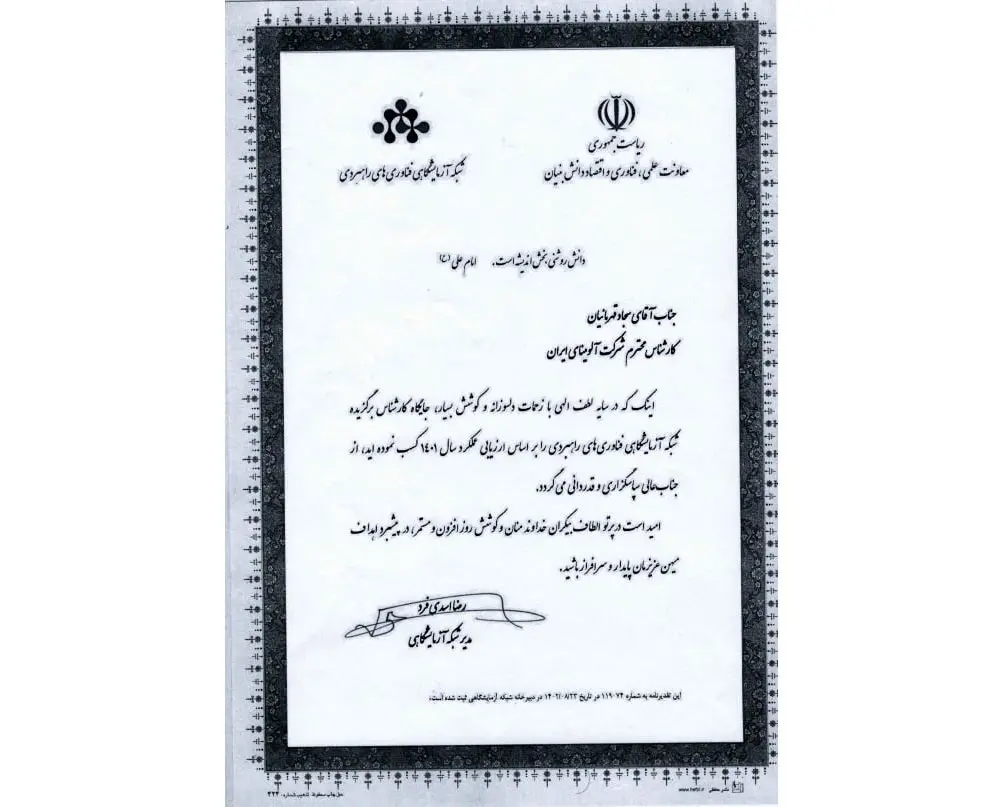 ریاست جمهوری
معاونت علمی، فناوری و اقتصاد دانش بنیان
شبکه آزمایشگاهی فناوری‌های راهبردی
دانش روشنی بخش اندیشه است. امام علی (ع)
جناب آقای سجاد قهرمانیان
کارشناس محترم شرکت آلومینای ایران
اینک که در سایه لطف الهی با زحمات دلسوزانه و کوشش بسیار، جایگاه کارشناس برگزیده
شبکه آزمایشگاهی فناوری‌های راهبردی را بر اساس ارزیابی عملکرد سال ۱۴۰۱ کسب نموده اید، از
جناب‌عالی سپاسگزاری و قدردانی می گردد.
امید است در پرتو الطاف بیکران خداوند منان و کوشش روز افزون و مستمر، در پیشبرد اهداف
میهن عزیزمان پایدار و سرافراز باشید.
رضا اسدی فرد
مدیر شبکه آزمایشگاهی
این تقدیرنامه به شماره ۱۱۹۰۷۴ در تاریخ ۱۴۰۲/۰۸/۲۳ در دبیرخانه شبکه آزمایشگاهی ثبت شده است.
حق چاپ محفوظ. تذهیب شماره: ۴۲۴